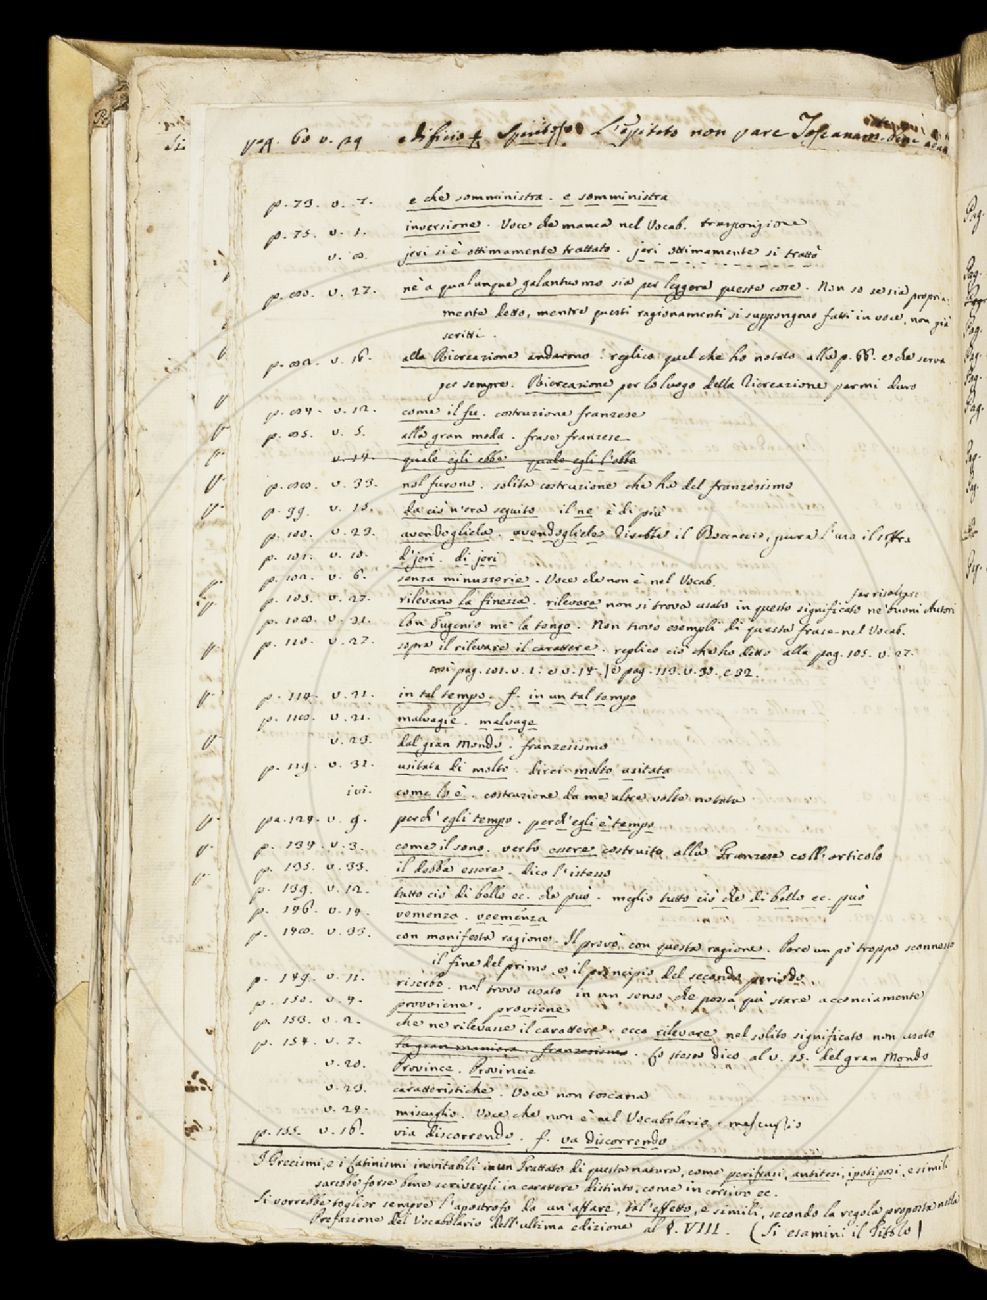 pag. 60 v. 29 edificio Spiritoso L'epiteto non pare Toscanam.
p. 73. v. 7. e che somministra. e somministra
p. 75. v. 1. inversione. Voce che manca nel Vocab. trasposizione
v. 8. jeri si è ottimamente trattato. jeri ottimamente si trattò
v. 27. nè a qualunque galantuomo sia per leggera queste cose. Non so se sia propria-
mente detto, mentre questi ragionamenti si suppongono fatti in voce, non già
scritti.
v. 16. alla Ricreazione andarono: replico quel che ho notato alla p. 66. e che serva
per sempre. Ricreazione per lo luogo della Ricreazione parmi duro
v. 12. come il fu. costruzione franzese
v. 5. alla gran moda. frase franzese
quale egli ebbe quale egli l'ebbe
v. 33. nol furono. solita costruzione che ha del franzesismo
p. 99. v. 15. da ciò n'era seguito il ne è di più
p. 100. v. 23. avendogliela. avendogliele direbbe il Boccaccio, pure l'uso il
p. 101. v. 10. d'jeri. di jeri
p. 102. v. 6. senza minuzzerie. Voce che non è nel Vocab.
p. 105. v. 27. rilevano la finezza. rilevare non si trova usato in questo significato ne' buoni Autori
v. 31. Con Eugenio me la tengo. Non trovo esempli di questa frase nel Vocab.
p. 110. v. 27. sopra il rilevare il carattere. replico ciò che ho detto alla pag. 105. v. 27.
così pag. 101. v. 1: e v. 14. e pag. 113. v. 30. e 32.
p. 114. v. 21. in tal tempo. f. in un tal tempo
v. 21. malvagie. malvage
v. 23. dal gran Mondo. franzesismo
p. 119. v. 31. usitata di molto. direi molto usitata
ivi. come lo è. costruzione da me altre volte notata
pa. 124. v. 9. perch' egli tempo. perch' egli è tempo
p. 134. v. 3. come il sono. verbo essere costruito alla Franzese coll' articolo
p. 135. v. 33. il debba essere. dico l'istesso
p. 139. v. 12. tutto ciò di bello ec. che può. meglio tutto ciò che di bello ec. può
p. 146. v. 19. vemenza. veemenza
v. 33. con manifesta ragione. Il provò con questa ragione. Pare un po' troppo sconnesso
il fine del primo, e il principio del secondo periodo
p. 149. v. 11. riserbo. nol trovo usato in un senso che possa qui stare acconciamente
p. 150. v. 4. provviene. proviene
p. 153. v. 2. che ne rilevasse il carattere. ecco rilevare nel solito significato non usato
p. 154. v. 7. la gran maniera. franzesismo. Lo stesso dico al v. 15. del gran Mondo
v. 20. Province. Provincie
v. 23. caratteristiche. Voce non toscana
v. 24. miscuglio. Voce che non è nel Vocabolario. mescuglio
p. 155. v. 16. via discorrendo. f. va discorrendo
I Grecismi, e i Latinismi inevitabili in un Trattato di questa natura, come perifrasi, antitesi, ipotiposi, e simili
sarebbe forse bene scrivergli in carattere distinto, come in corsivo ec.
Si vorrebbe toglier sempre l'apostrofo da un' affare, tal' effetto, e simili, secondo la regola proposta nella
Prefazione del Vocabolario dell'ultima edizione al §. VIII. (Si esamini il Titolo)